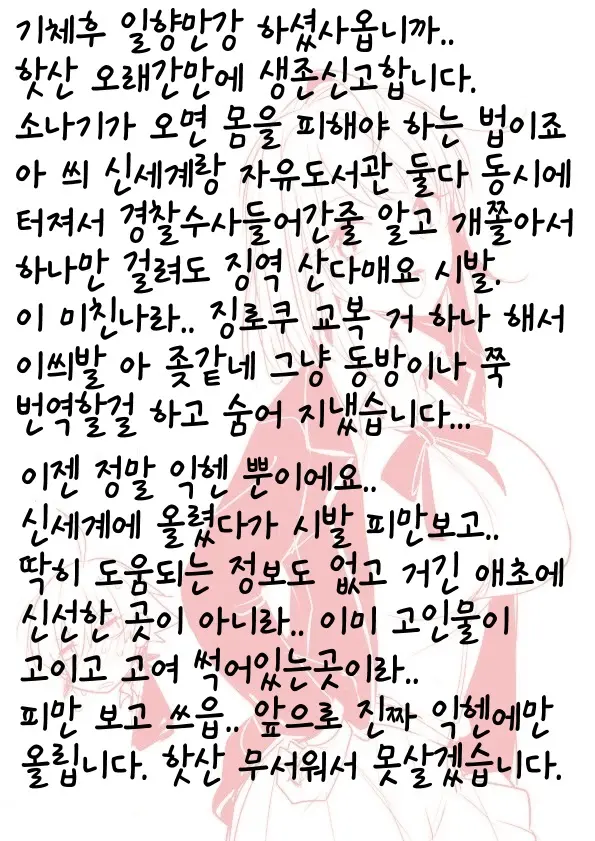 기체후 일향만강 하셨사옵니까..
핫산 오래간만에 생존신고합니다.
소나기가 오면 몸을 피해야 하는 법이죠
아 씌 신세계랑 자유도서관 둘다 동시에
터져서 경찰수사들어간줄 알고 개쫄아서
하나만 걸려도 징역 산다매요 시발.
이 미친나라.. 징로쿠 교복 거 하나 해서
이씌발 아 좆같네 그냥 동방이나 쭉
번역할걸 하고 숨어 지냈습니다...
이젠 정말 익헨 뿐이에요..
신세계에 올렸다가 시발 피만보고..
딱히 도움되는 정보도 없고 거긴 애초에
신선한 곳이 아니라.. 이미 고인물이
고이고 고여 썩어있는곳이라..
피만 보고 쓰읍.. 앞으로 진짜 익헨에만
올립니다. 핫산 무서워서 못살겠습니다.